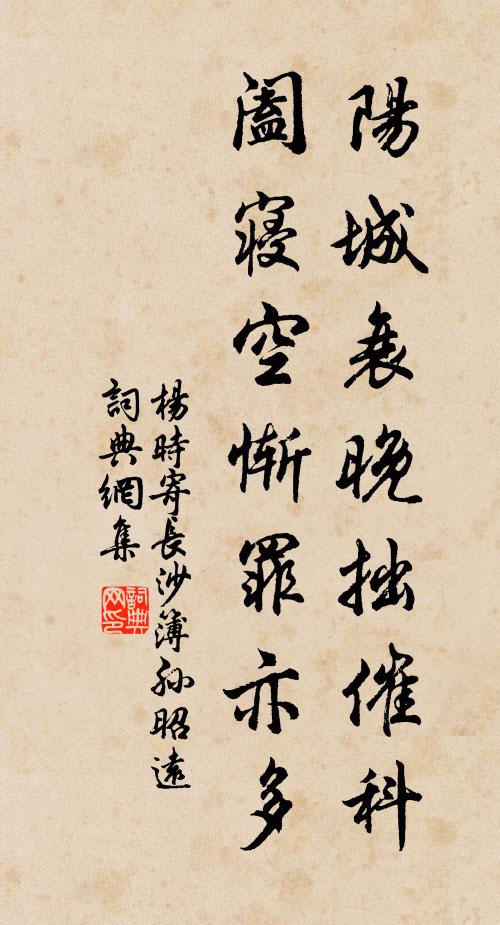 陽城衰晚拙催科
闔寢空慚罪亦多
楊時寄長沙簿孫昭遠
詞典網集
詞典网印